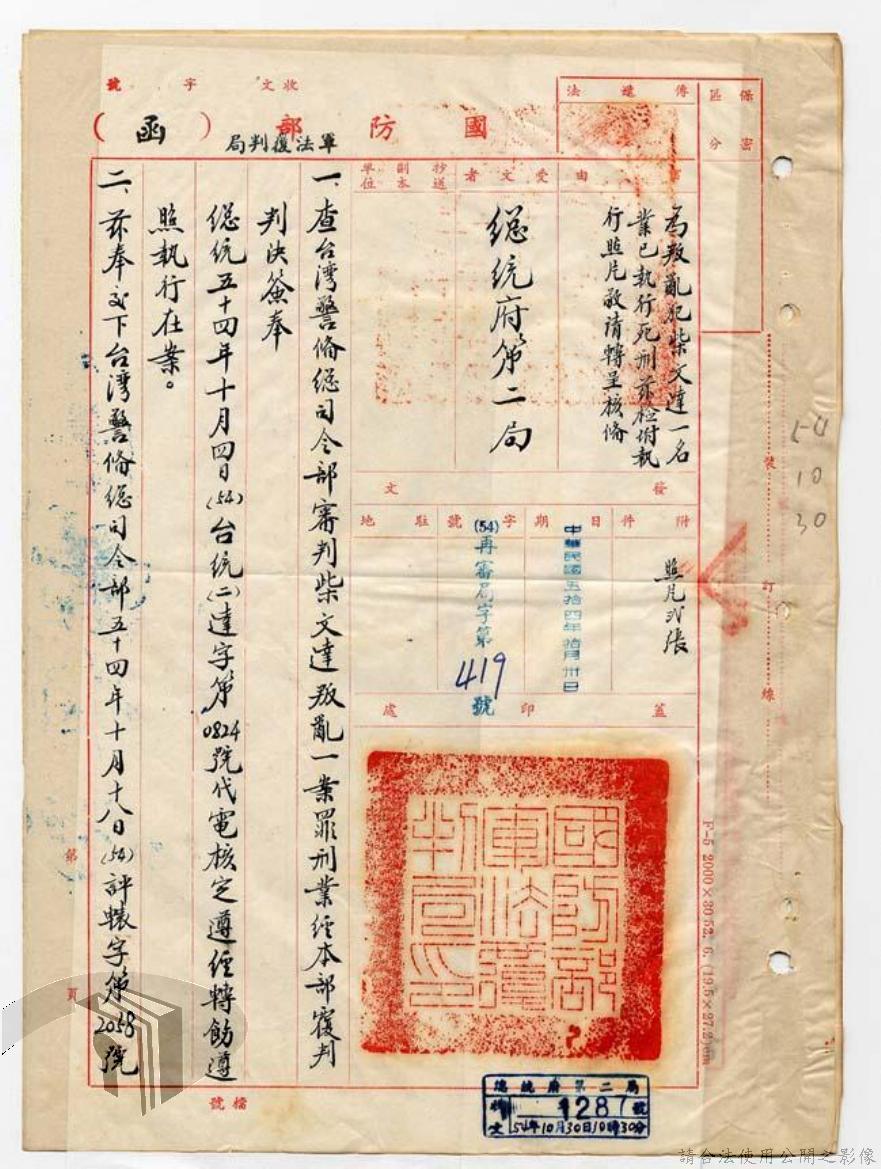 保密
區分
傳遞法
收文 字 號
國防部（函）
軍法覆判局
由
為叛亂犯柴文達一名
業已執行死刑茲檢附執
行照片敬請轉呈核備
受文者
總統府第二局
抄送
副本
單位
發文
附件
照片弍張
日期
中華民國五拾四年拾月卅日
字號
(54)再審局字第419號
駐地
蓋印處
國防部
軍法覆
判局印
一、查台湾警備總司令部審判柴文達叛亂一案罪刑業經本部覆判
判決簽奉
總統五十四年十月四日(54)台統(二)達字第0824號代電核定遵經轉飭遵
照執行在案。
二、茲奉交下台湾警備總司令部五十四年十月十八日(54)評轅字第2058號
裝
訂
線
54
10
30
第
頁
檔號
F-5 2000×30 52. 6. (19.5×27.2)cm
總統府第二局
收文 1287號
54年10月30日10時30分
請合法使用公開之影像